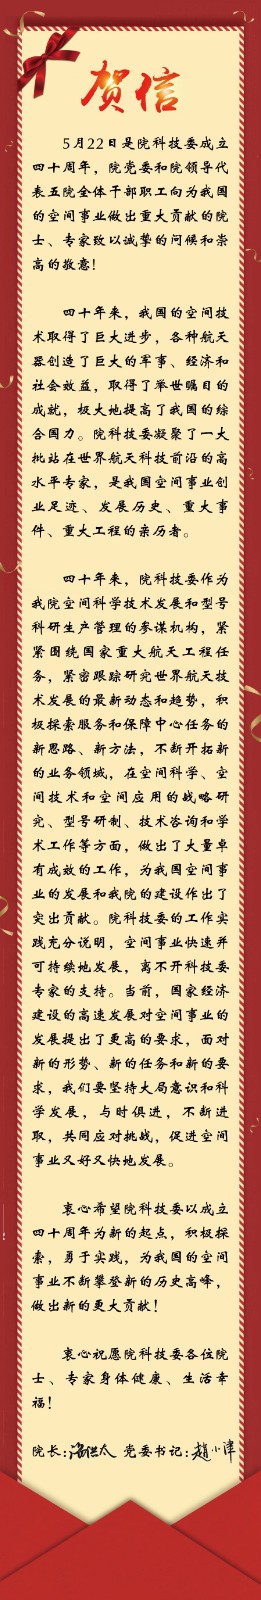 贺信
5月22日是院科技委成立
四十周年，院党委和院领导代
表五院全体干部职工向为我国
的空间事业做出重大贡献的院
士、专家致以诚挚的问候和崇
高的敬意!
四十年来，我国的空间技
术取得了巨大进步，各种航天
器创造了巨大的军事、经济和
社会效益，取得了举世瞩目的
成就，极大地提高了我国的综
合国力。院科技委凝聚了一大
批站在世界航天科技前沿的高
水平专家，是我国空间事业创
业足迹、发展历史、重大事
件、重大工程的亲历者。
四十年来，院科技委作为
我院空间科学技术发展和型号
科研生产管理的参谋机构，紧
紧围绕国家重大航天工程任
务，紧密跟踪研究世界航天技
术发展的最新动态和趋势，积
极探索服务和保障中心任务的
新思路、新方法，不断开拓新
的业务领域，在空间科学、空
间技术和空间应用的战略研
究、型号研制、技术咨询和学
术工作等方面，做出了大量卓
有成效的工作，为我国空间事
业的发展和我院的建设作出了
突出贡献。院科技委的工作实
践充分说明，空间事业快速并
可持续地发展，离不开科技委
专家的支持。当前，国家经济
建设的高速发展对空间事业的
发展提出了更高的要求，面对
新的形势、新的任务和新的要
求，我们要坚持大局意识和科
学发展，与时俱进，不断进
取，共同应对挑战，促进空间
事业又好又快地发展。
衷心希望院科技委以成立
四十周年为新的起点，积极探
索，勇于实践，为我国的空间
事业不断攀登新的历史高峰，
做出新的更大贡献!
衷心祝愿院科技委各位院
士、专家身体健康、生活幸
福!
院长: 党委书记: 赵小津